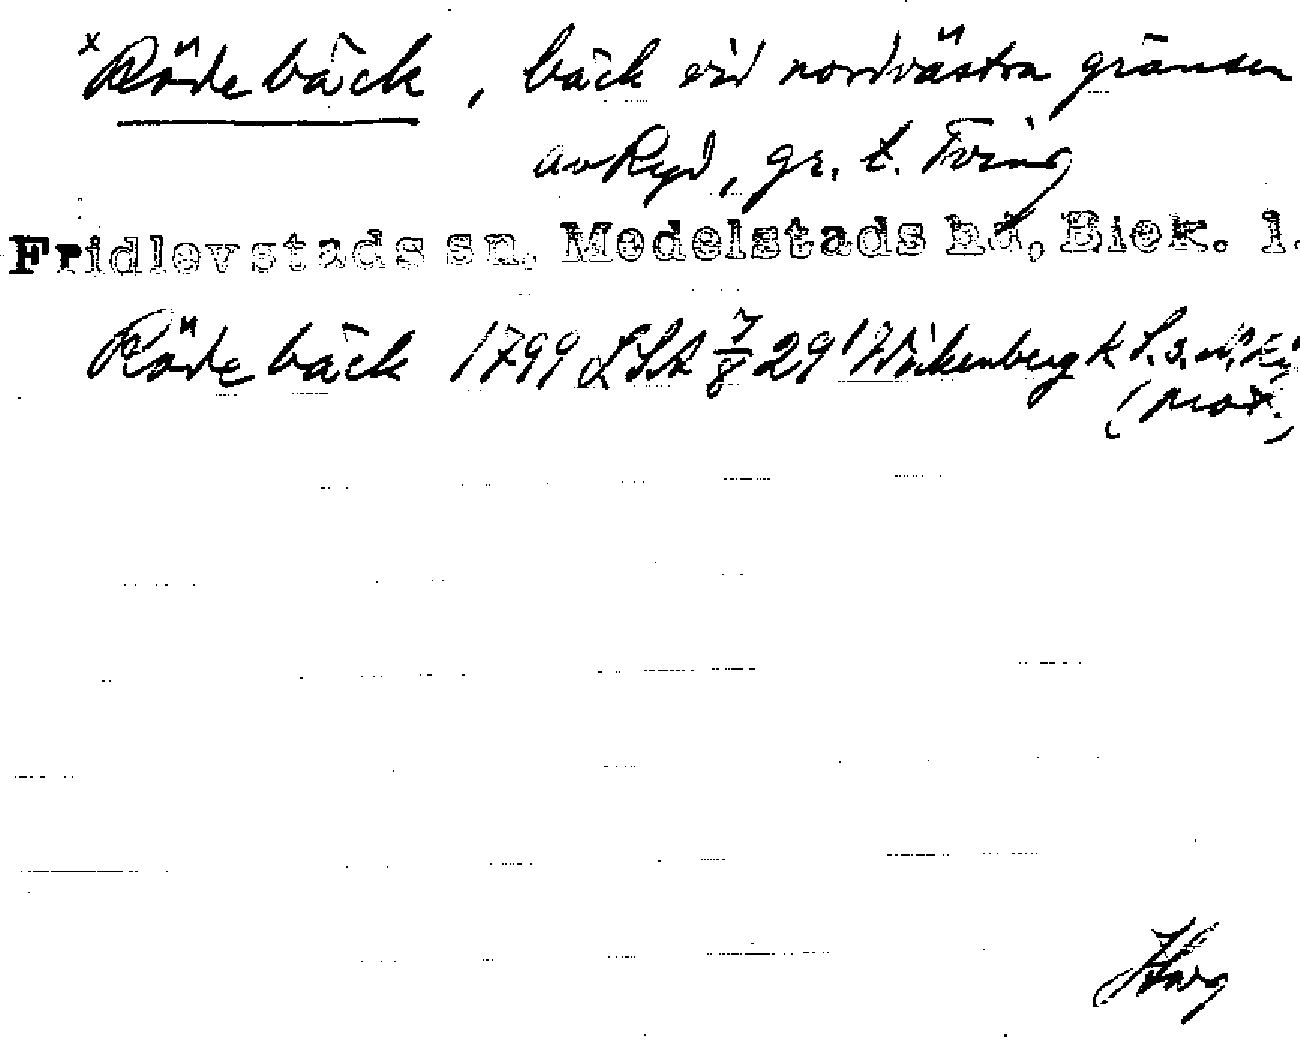 x Röde bäck, bäck vid nordvästra gränsen
av Ryd, gr. t. Tving
Fridlevstads sn, Medelstads hd, Blek. l.
Röde bäck 1799 LSA 7/8 29 Wirkenberg k
(prot.)
Harg